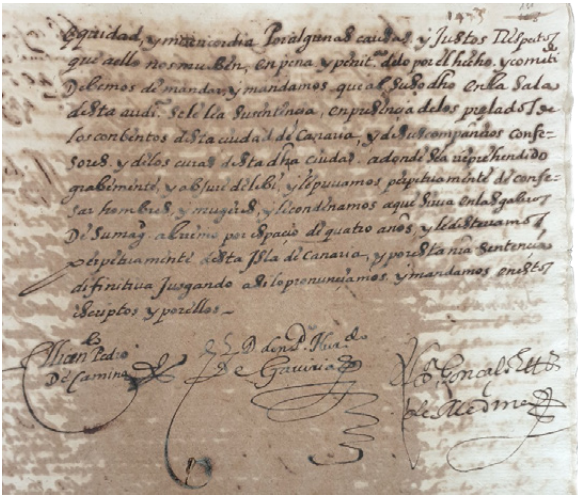 equidad, y misericordia Por algunas causas, y Justos Respetos
que a ello nos mueben, en pena y penit.ª de lo por el hecho, y cometi
Debemos de mandar, y mandamos que al suso dho en la Sala
desta audi.ª se le lea su sentencia, en presencia de los prelados de
los conbentos desta ciudad de Canaria, y de sus companeros confe=
sores, y de los curas desta dha ciudad. adonde sea reprehendido
grabemente, y abjure de lebi, y le pribamos perpetuamente de confe=
sar hombres, y mugeres, y le condenamos a que sirva en las galeras
De su mag. al remo por espacio de quatro años, y le desterramos
perpetuamente desta Isla de Canaria, y por esta nra sentencia
difinitiva Jusgando asi lo pronunciamos, y mandamos en estos
escriptos y por ellos ~
Pedro
De Camino
D.
de
Gonçalo
de Medina